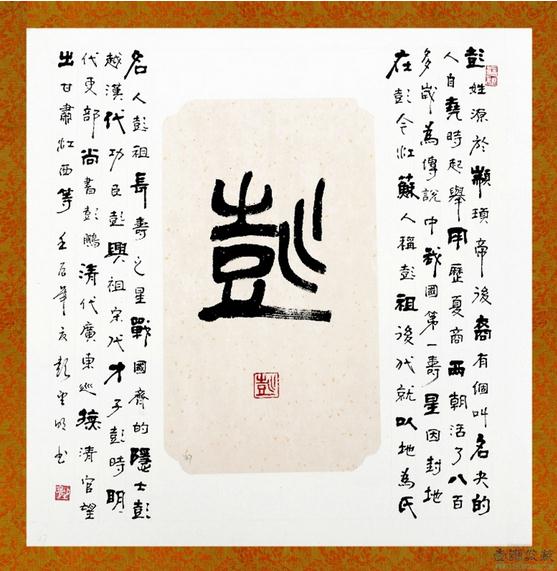 彭姓源於顓頊帝後裔有個叫名夫的
人自堯時起舉用歷夏商兩朝活了八百
多歲為傳說中我國第一壽星因封地
在彭今江蘇人稱彭祖後代就以地為氏
彭
彭
名人彭祖長壽之星戰國齊的隱士彭
越漢代功臣彭興祖宋代才子彭時明
代吏部尚書彭鵬清代廣東巡撫清官望
出甘肅江西等 年 彭 書